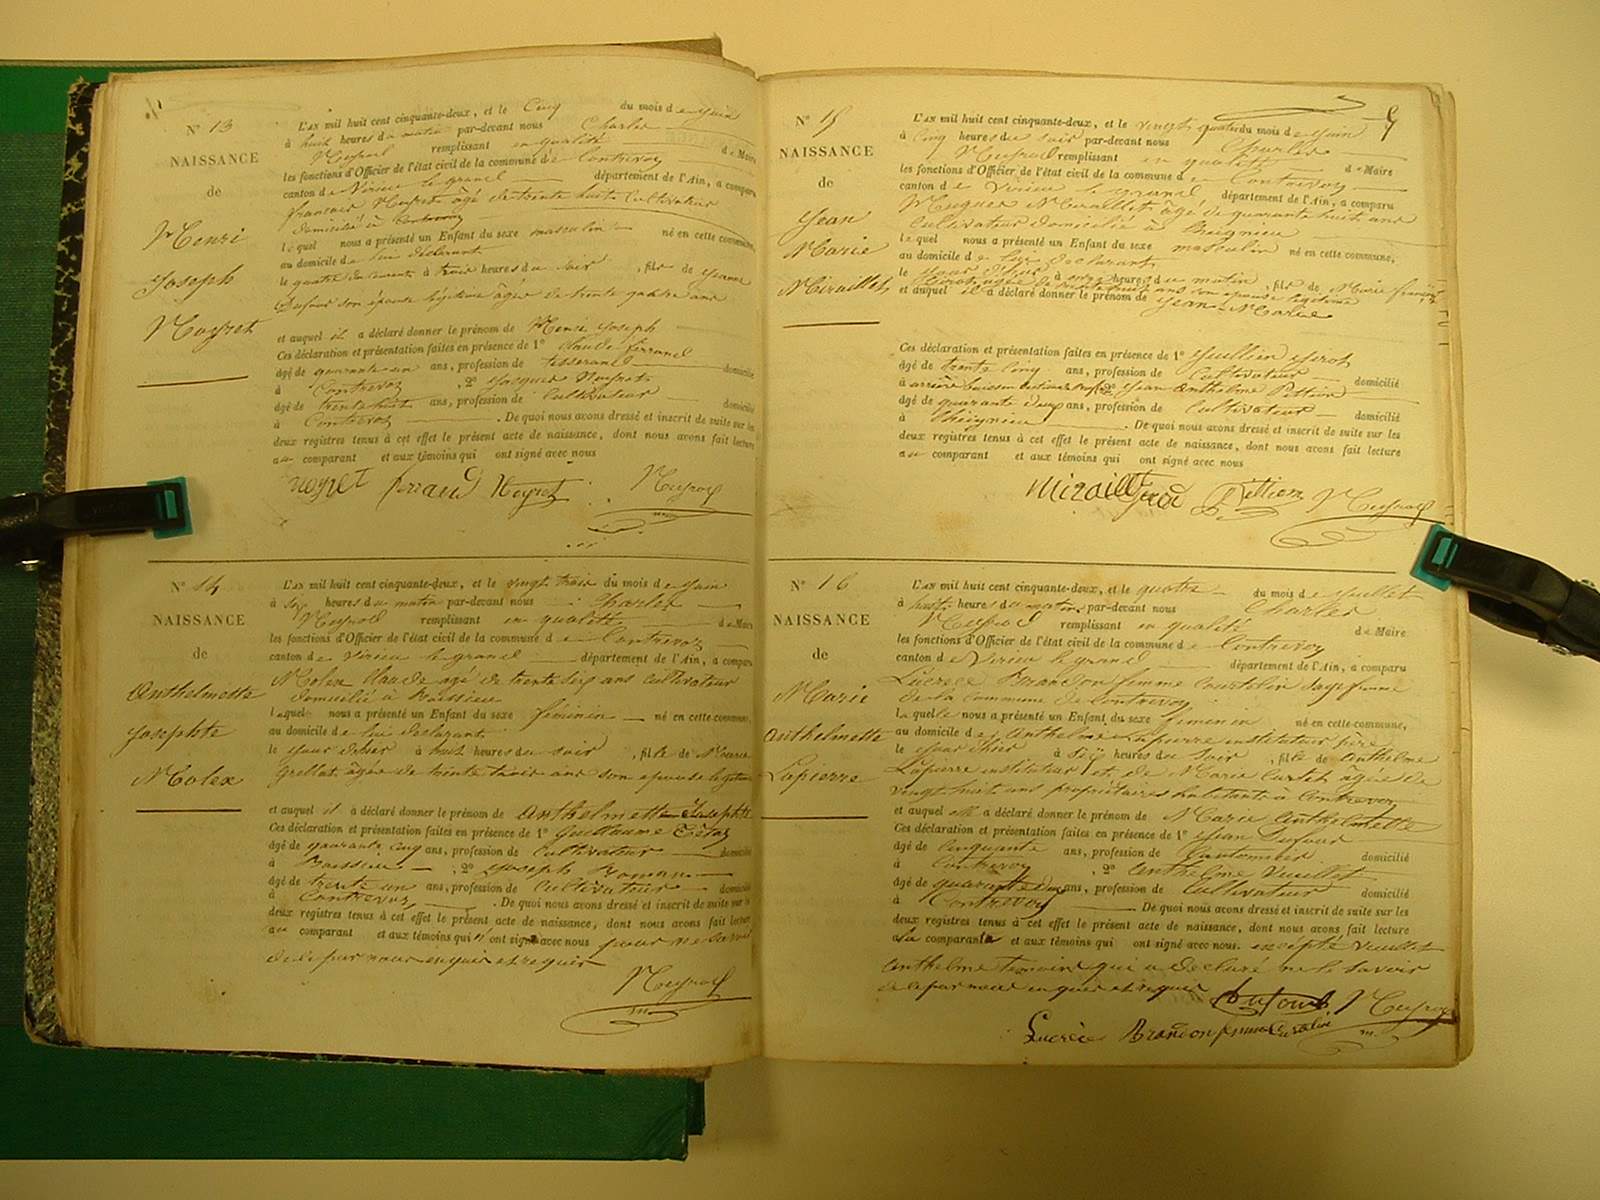 N° 13
NAISSANCE
de
Henri
Joseph
Neyret
L'AN mil huit cent cinquante-deux, et le Cinq du mois de Juin
à huit heures du matin par-devant nous Charles
Neyroud remplissant en qualité de Maire
les fonctions d'Officier de l'état civil de la commune de Contrevoz
canton de Virieu le grand département de l'Ain, a comparu
françois Neyret âgé de trente huit Cultivateur
domicilié à Contrevoz
lequel nous a présenté un Enfant du sexe masculin né en cette commune,
au domicile de lui déclarant
le quatre du courant à trois heures du soir, fils de Jeanne
Dufour son épouse légitime âgée de trente quatre ans
et auquel il a déclaré donner le prénom de Henri Joseph
Ces déclaration et présentation faites en présence de 1° Claude ferrand
âgé de quarante un ans, profession de tisserand domicilié
à Contrevoz, 2° Jacques Neyret
âgé de trente huit ans, profession de Cultivateur domicilié
à Contrevoz. De quoi nous avons dressé et inscrit de suite sur les
deux registres tenus à cet effet le présent acte de naissance, dont nous avons fait lecture
au comparant et aux témoins qui ont signé avec nous
neyret ferrand Neyret Neyroud
N° 14
NAISSANCE
de
Anthelmette
Josephte
Molex
L'AN mil huit cent cinquante-deux, et le vingt trois du mois de Juin
à six heures du matin par-devant nous Charles
Neyroud remplissant en qualité de Maire
les fonctions d'Officier de l'état civil de la commune de Contrevoz
canton de Virieu le grand département de l'Ain, a comparu
Molex Claude agé de trente six ans cultivateur
domicilié à Boissieu
lequel nous a présenté un Enfant du sexe féminin né en cette commune,
au domicile de lui déclarant
le jour d'hier à huit heures du soir, fille de Marie
Grellet âgée de trente trois ans son epouse légitime
et auquel il a déclaré donner le prénom de Anthelmette Josephte
Ces déclaration et présentation faites en présence de 1° Guillaume Tétaz
âgé de quarante cinq ans, profession de Cultivateur domicilié
à Boissieu, 2° Joseph Roman
âgé de trente un ans, profession de Cultivateur domicilié
à Contrevoz. De quoi nous avons dressé et inscrit de suite sur les
deux registres tenus à cet effet le présent acte de naissance, dont nous avons fait lecture
au comparant et aux témoins qui n'ont signé avec nous pour ne savoir
de ce par nous enquis et requis
Neyroud
N° 15
NAISSANCE
de
Jean
Marie
Miraillet
L'AN mil huit cent cinquante-deux, et le vingt quatre du mois de Juin
à Cinq heures du soir par-devant nous Charles
Neyroud remplissant en qualité de Maire
les fonctions d'Officier de l'état civil de la commune de Contrevoz
canton de Virieu le grand département de l'Ain, a comparu
Huguer Miraillet âgé de quarante huit ans
Cultivateur domicilié à
lequel nous a présenté un Enfant du sexe masculin né en cette commune,
au domicile de lui déclarant
le jour d'hui à onze heures du matin, fils de Marie françoise
âgée de trente huit ans son epouse légitime
et auquel il a déclaré donner le prénom de Jean Marie
Ces déclaration et présentation faites en présence de 1° Jullien Jerod
âgé de trente cinq ans, profession de Cultivateur domicilié
à 2° Jean Anthelme Pettion
âgé de quarante deux ans, profession de Cultivateur domicilié
à. De quoi nous avons dressé et inscrit de suite sur les
deux registres tenus à cet effet le présent acte de naissance, dont nous avons fait lecture
au comparant et aux témoins qui ont signé avec nous
miraillet Jerod Pettion Neyroud
N° 16
NAISSANCE
de
Marie
Anthelmette
Lapierre
L'AN mil huit cent cinquante-deux, et le quatre du mois de Juillet
à huit heures du matin par-devant nous Charles
Neyroud remplissant en qualité de Maire
les fonctions d'Officier de l'état civil de la commune de Contrevoz
canton de Virieu le grand département de l'Ain, a comparu
Lucrèce Brandon femme Courtolin Sage femme
de la commune de Contrevoz
laquelle nous a présenté un Enfant du sexe feminin né en cette commune,
au domicile de Anthelme Lapierre instituteur père
le jour d'hier à six heures du soir, fille de Anthelme
Lapierre instituteur et de Marie Curtet âgée de
vingt huit ans propriétaires habitants à Contrevoz
et auquel elle a déclaré donner le prénom de Marie Anthelmette
Ces déclaration et présentation faites en présence de 1° Jean Dufour
âgé de Cinquante ans, profession de Cantonnier domicilié
à Contrevoz, 2° Anthelme Vuillet
âgé de quarante deux ans, profession de Cultivateur domicilié
à Contrevoz De quoi nous avons dressé et inscrit de suite sur les
deux registres tenus à cet effet le présent acte de naissance, dont nous avons fait lecture
à la comparante et aux témoins qui ont signé avec nous. excepté Vuillet
Anthelme temoin qui a déclaré ne le savoir
de ce par nous enquis et requis Dufour Neyroud
Lucrèce Brandon femme